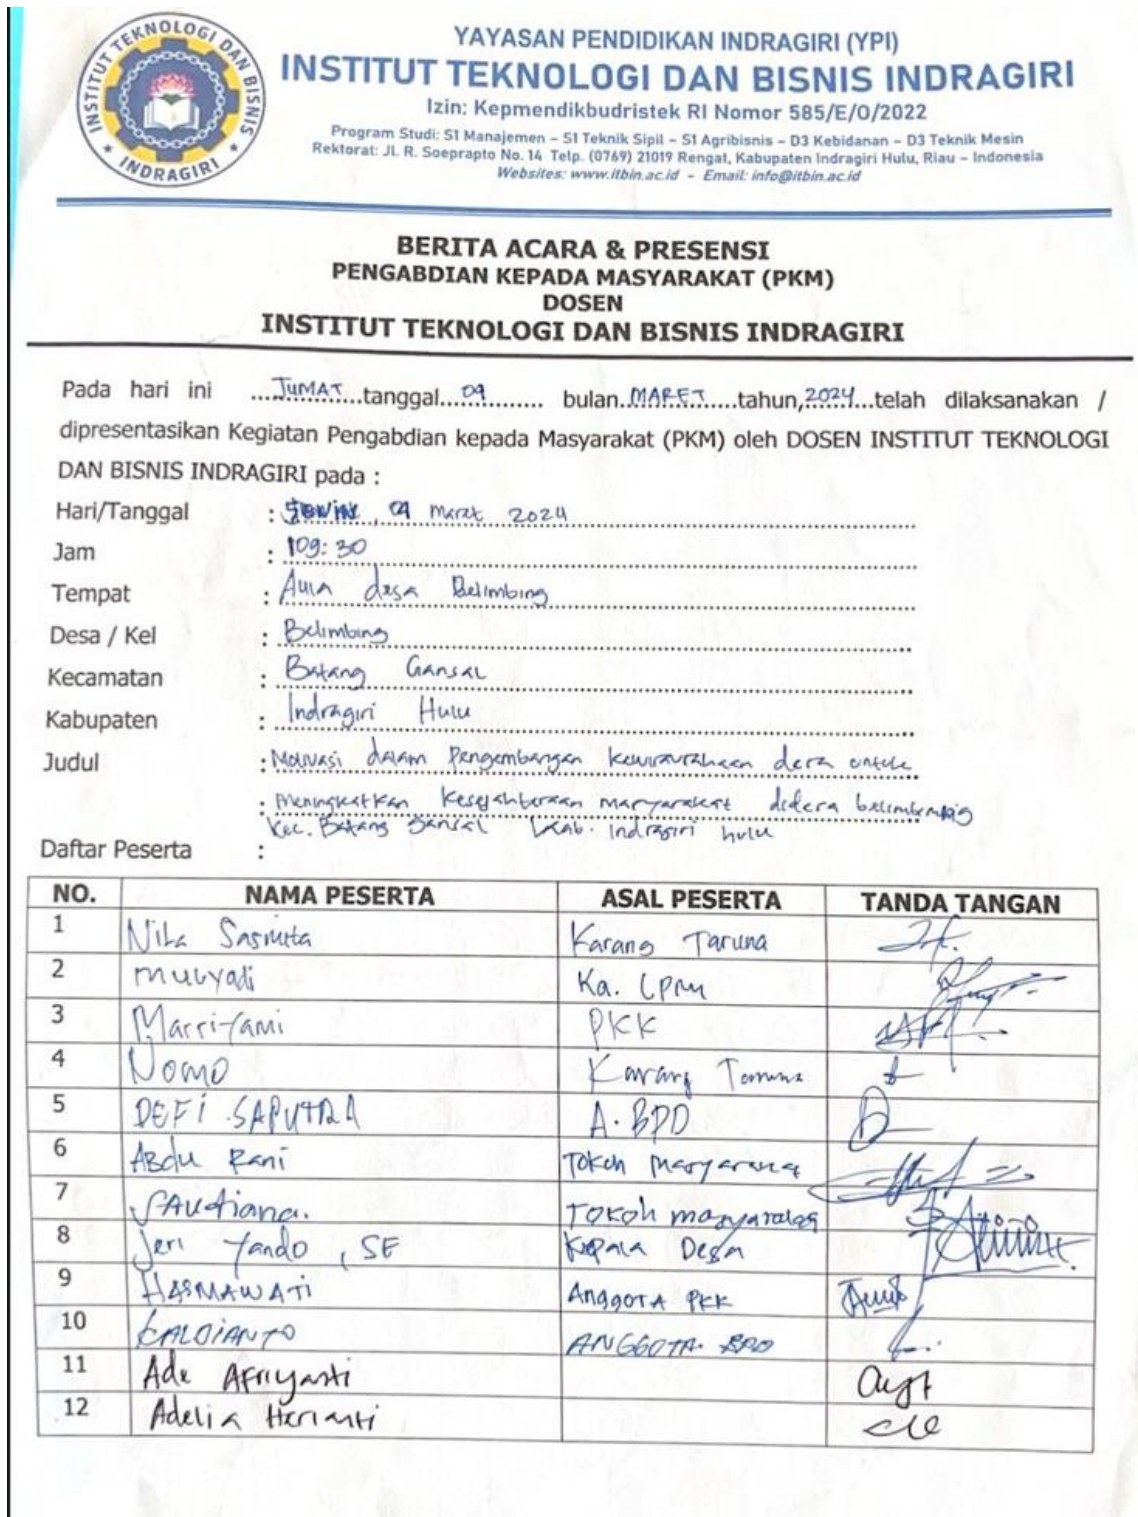 INSTITUT TEKNOLOGI DAN BISNIS
* INDRAGIRI *
YAYASAN PENDIDIKAN INDRAGIRI (YPI)
INSTITUT TEKNOLOGI DAN BISNIS INDRAGIRI
Izin: Kepmendikbudristek RI Nomor 585/E/O/2022
Program Studi: S1 Manajemen – S1 Teknik Sipil – S1 Agribisnis – D3 Kebidanan – D3 Teknik Mesin
Rektorat: Jl. R. Soeprapto No. 14 Telp. (0769) 21019 Rengat, Kabupaten Indragiri Hulu, Riau – Indonesia
Websites: www.itbin.ac.id - Email: info@itbin.ac.id
BERITA ACARA & PRESENSI
PENGABDIAN KEPADA MASYARAKAT (PKM)
DOSEN
INSTITUT TEKNOLOGI DAN BISNIS INDRAGIRI
Pada hari ini ...JUMAT...tanggal...09... bulan..MARET...tahun,2024...telah dilaksanakan /
dipresentasikan Kegiatan Pengabdian kepada Masyarakat (PKM) oleh DOSEN INSTITUT TEKNOLOGI
DAN BISNIS INDRAGIRI pada :
Hari/Tanggal : , 09 Maret 2024
Jam : 109:30
Tempat : Aula desa Belimbing
Desa / Kel : Belimbing
Kecamatan : Batang Gansal
Kabupaten : Indragiri Hulu
Judul : Motivasi dalam Pengembangan kewirausahaan desa untuk
: Meningkatkan Kesejahteraan masyarakat didesa
Kec. Batang Gansal Kab. Indragiri hulu
Daftar Peserta :
NO. NAMA PESERTA ASAL PESERTA TANDA TANGAN
1 Nila Sasmita Karang Taruna
2 Mulyadi Ka. LPM
3 Marriyani PKK
4 Nomo Karang Taruna
5 DEFI SAPUTRA A. BPD
6 Abdu Rani Tokoh
7 Tokoh
8 Jeri Yando, SE Kepala Desa
9 HASMAWATI Anggota PKK
10 ANGGOTA BPD
11 Ade Afriyanti
12 Adelia Herianti